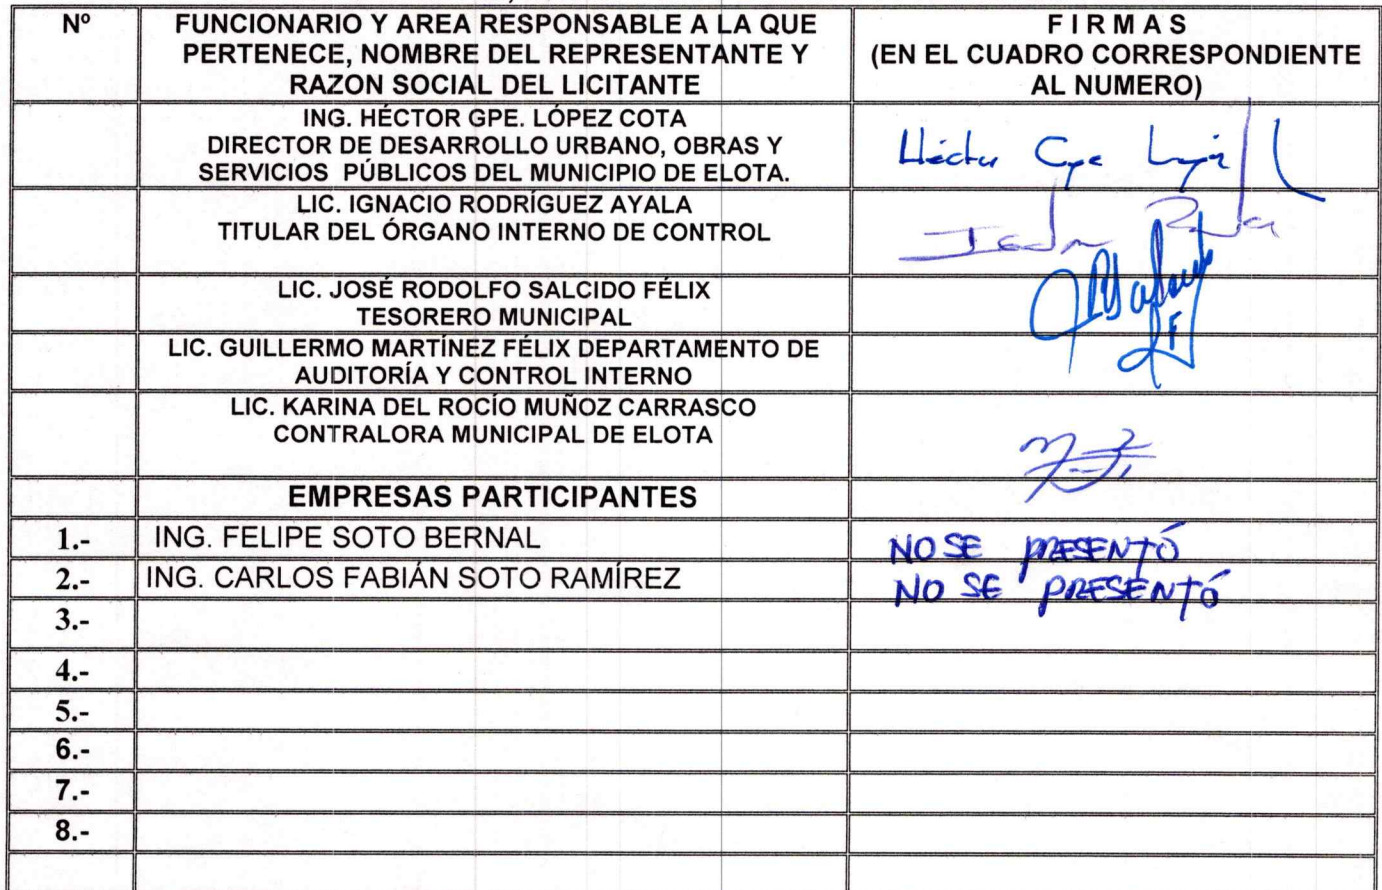 Nº
FUNCIONARIO Y AREA RESPONSABLE A LA QUE
PERTENECE, NOMBRE DEL REPRESENTANTE Y
RAZON SOCIAL DEL LICITANTE
F I R M A S
(EN EL CUADRO CORRESPONDIENTE
AL NUMERO)
ING. HÉCTOR GPE. LÓPEZ COTA
DIRECTOR DE DESARROLLO URBANO, OBRAS Y
SERVICIOS PÚBLICOS DEL MUNICIPIO DE ELOTA.
LIC. IGNACIO RODRÍGUEZ AYALA
TITULAR DEL ÓRGANO INTERNO DE CONTROL
LIC. JOSÉ RODOLFO SALCIDO FÉLIX
TESORERO MUNICIPAL
LIC. GUILLERMO MARTÍNEZ FÉLIX DEPARTAMENTO DE
AUDITORÍA Y CONTROL INTERNO
LIC. KARINA DEL ROCÍO MUÑOZ CARRASCO
CONTRALORA MUNICIPAL DE ELOTA
EMPRESAS PARTICIPANTES
1.- ING. FELIPE SOTO BERNAL NO SE PRESENTÓ
2.- ING. CARLOS FABIÁN SOTO RAMÍREZ NO SE PRESENTÓ
3.-
4.-
5.-
6.-
7.-
8.-